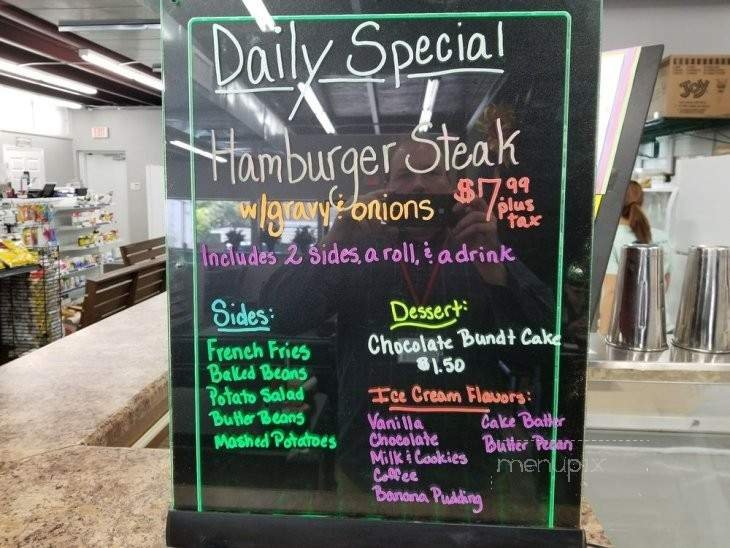 Daily Special
Hamburger Steak
w/gravy & onions $7.99 plus tax
Includes 2 sides, a roll, & a drink
Sides:
French Fries
Baked Beans
Potato Salad
Butter Beans
Mashed Potatoes
Dessert:
Chocolate Bundt Cake
$1.50
Ice Cream Flavors:
Vanilla
Chocolate
Milk & Cookies
Coffee
Banana Pudding
Cake Batter
Butter Pecan
menupix
Joy